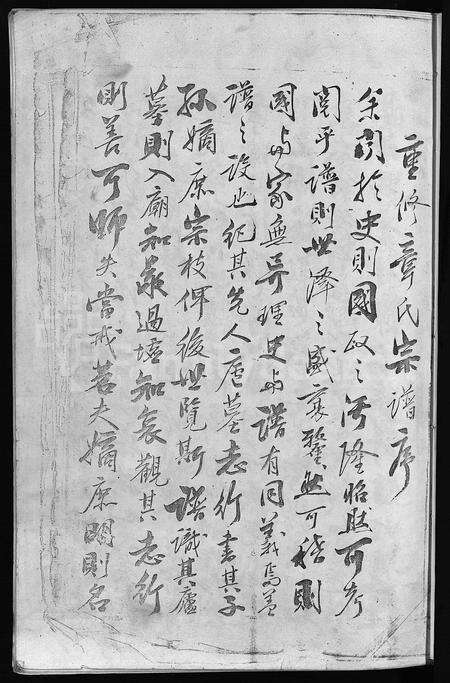 重修章氏宗譜序
余閱於史則國政之汙隆昭然可考
閱乎譜則世澤之盛衰鑿然可稽則
國與家無異理史與譜有同義焉蓋
譜之設也紀其先人廬墓志行書其子
孫嫡庶宗枝俾後世覽斯譜識其廬
墓則入廟知敬過墟知哀觀其志行
則善可師失當戒若夫嫡庶明則名